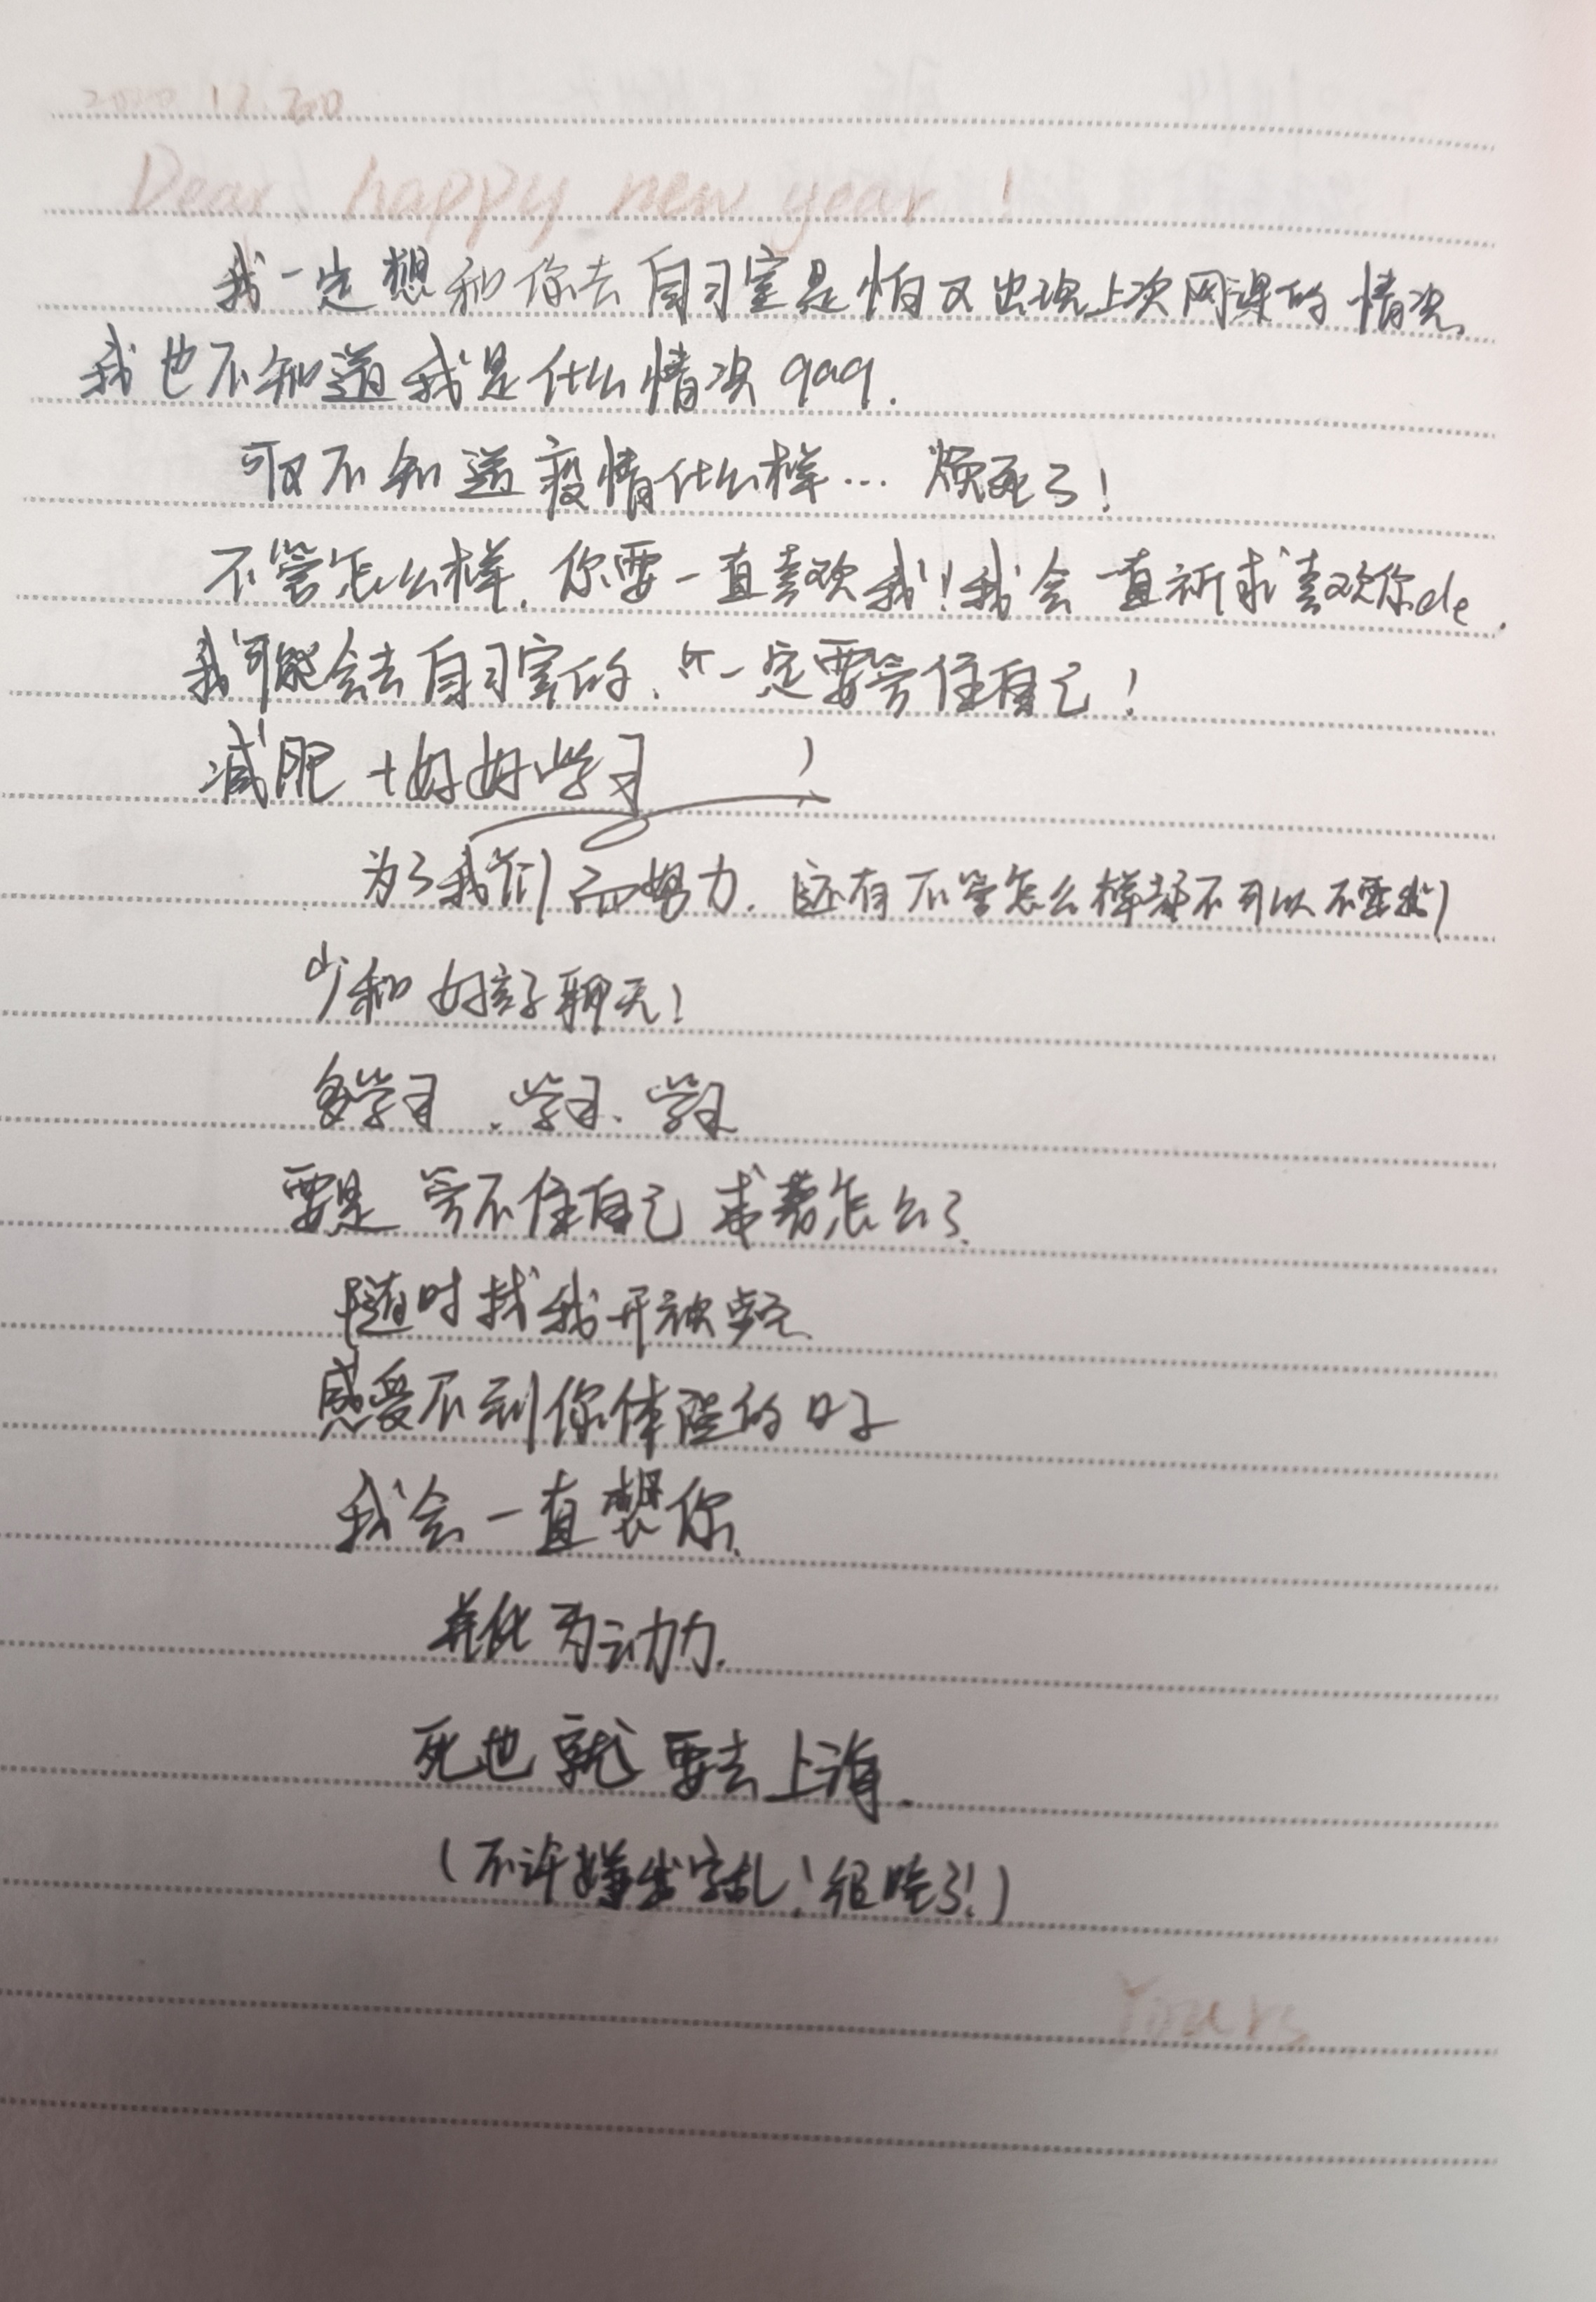 Dear, happy new year!
我一定想和你去自习室是怕又出现上次网课的情况、
我也不知道我是什么情况qaq.
可又不知道疫情什么样… 烦死了!
不管怎么样,你要一直喜欢我!我会一直祈求喜欢你de.
我可能会去自习室的、一定要管住自己!
减肥+好好学习!
为了我们而努力.还有不管怎么样都不可以不要我
少和女孩子聊天!
多学习、学习、学习
要是管不住自己 或者怎么了、
随时找我开视频.
感受不到你体温的日子
我会一直想你、
并化为动力.
死也就要去上海.
(不许嫌我字乱!很晚了!)
Yours